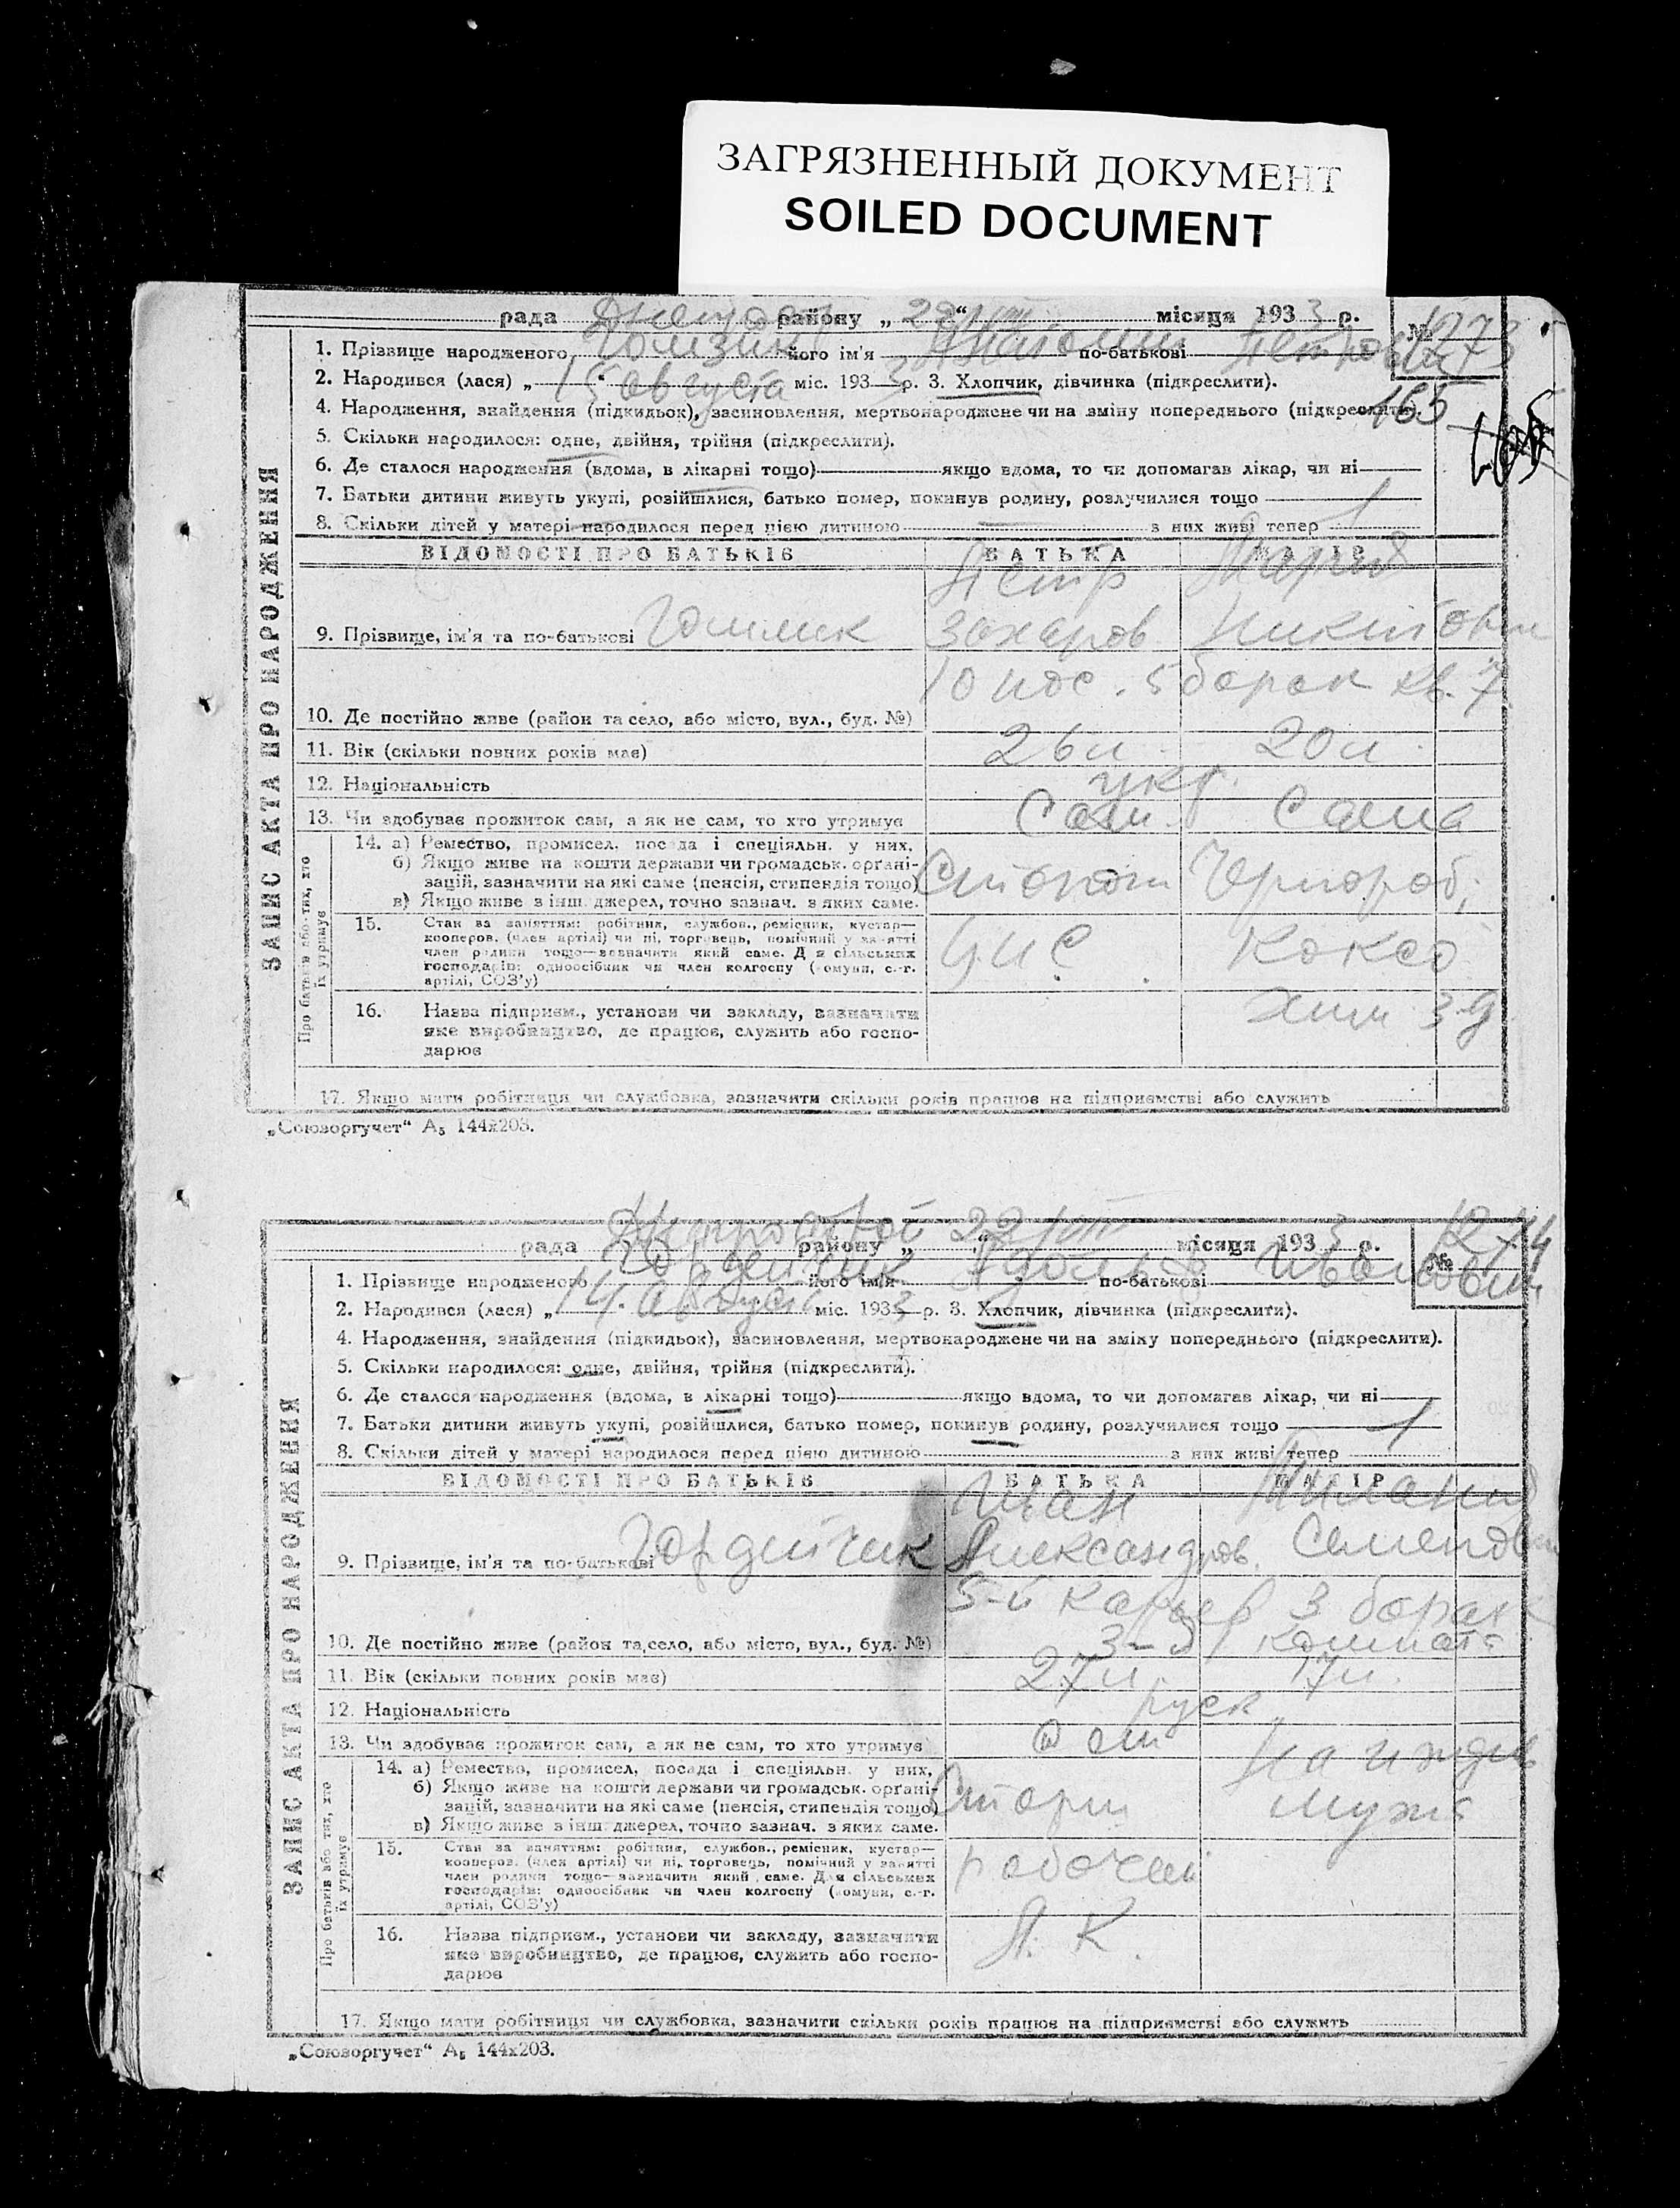 ЗАГРЯЗНЕННЫЙ ДОКУМЕНТ
SOILED DOCUMENT
рада району „ 22/VIII “ місяця 1933 р.
№ 1273
1. Прізвище народженого його ім'я по-батькові
2. Народився (лася) „ 15 августа міс. 1933 р. 3. Хлопчик, дівчинка (підкреслити).
4. Народження, знайдення (підкидьок), засиновлення, мертвонароджене чи на зміну попереднього (підкреслити).
165
5. Скільки народилося: одне, двійня, трійня (підкреслити).
6. Де сталося народження (вдома, в лікарні тощо) якщо вдома, то чи допомагав лікар, чи ні
7. Батьки дитини живуть укупі, розійшлися, батько помер, покинув родину, розлучилися тощо
8. Скільки дітей у матері народилося перед цією дитиною — з них живі тепер 1
ЗАПИС АКТА ПРО НАРОДЖЕННЯ
ВІДОМОСТІ ПРО БАТЬКІВ БАТЬКА МАТІР
Петр Мария
9. Прізвище, ім'я та по-батькові Захаров Никитовн
10 пос. 5 барак кв. 7
10. Де постійно живе (район та село, або місто, вул., буд. №)
11. Вік (скільки повних років має) 26 л. 20 л.
12. Національність укр.
13. Чи здобуває прожиток сам, а як не сам, то хто утримує Сам. Сама
Про батьків або тих, хто їх утримує
14. а) Ремество, промисел, посада і спеціяльн. у них.
б) Якщо живе на кошти держави чи громадськ. орґані-
зацій, зазначити на які саме (пенсія, стипендія тощо) Чернораб.
в) Якщо живе з інш. джерел, точно зазнач. з яких саме.
15. Стан за заняттям: робітник, службов., ремісник, кустар—
кооперов. (член артілі) чи ні, торговець, помічний у занятті
член родини тощо—зазначити який саме. Для сільських
господарів: одноосібник чи член колгоспу (комуни, с.-г.
артілі, СОЗ'у)
Коксо
хим з-д
16. Назва підприєм., установи чи закладу, зазначити
яке виробництво, де працює, служить або госпо-
дарює
17. Якщо мати робітниця чи службовка, зазначити скільки років працює на підприємстві або служить
„Союзоргучет“ А₅ 144х203.
рада району „ 22/VIII “ місяця 1933 р.
№ 1274
1. Прізвище народженого Гордейчик його ім'я по-батькові Иванович
2. Народився (лася) „ 14 августа міс. 1933 р. 3. Хлопчик, дівчинка (підкреслити).
4. Народження, знайдення (підкидьок), засиновлення, мертвонароджене чи на зміну попереднього (підкреслити).
5. Скільки народилося: одне, двійня, трійня (підкреслити).
6. Де сталося народження (вдома, в лікарні тощо) якщо вдома, то чи допомагав лікар, чи ні
7. Батьки дитини живуть укупі, розійшлися, батько помер, покинув родину, розлучилися тощо
8. Скільки дітей у матері народилося перед цією дитиною — з них живі тепер 1
ЗАПИС АКТА ПРО НАРОДЖЕННЯ
ВІДОМОСТІ ПРО БАТЬКІВ БАТЬКА МАТІР
Иван
9. Прізвище, ім'я та по-батькові Гордейчик Александров. Семеновн
5-й карьер 3 барак
10. Де постійно живе (район та село, або місто, вул., буд. №) 3-я комната
11. Вік (скільки повних років має) 27 л. 17 л.
12. Національність руск.
13. Чи здобуває прожиток сам, а як не сам, то хто утримує Сам На иждив
Про батьків або тих, хто їх утримує
14. а) Ремество, промисел, посада і спеціяльн. у них.
б) Якщо живе на кошти держави чи громадськ. орґані-
зацій, зазначити на які саме (пенсія, стипендія тощо) мужа
в) Якщо живе з інш. джерел, точно зазнач. з яких саме.
15. Стан за заняттям: робітник, службов., ремісник, кустар—
кооперов. (член артілі) чи ні, торговець, помічний у занятті
член родини тощо—зазначити який саме. Для сільських
господарів: одноосібник чи член колгоспу (комуни, с.-г.
артілі, СОЗ'у)
рабочий
16. Назва підприєм., установи чи закладу, зазначити
яке виробництво, де працює, служить або госпо-
дарює
17. Якщо мати робітниця чи службовка, зазначити скільки років працює на підприємстві або служить
„Союзоргучет“ А₅ 144х203.